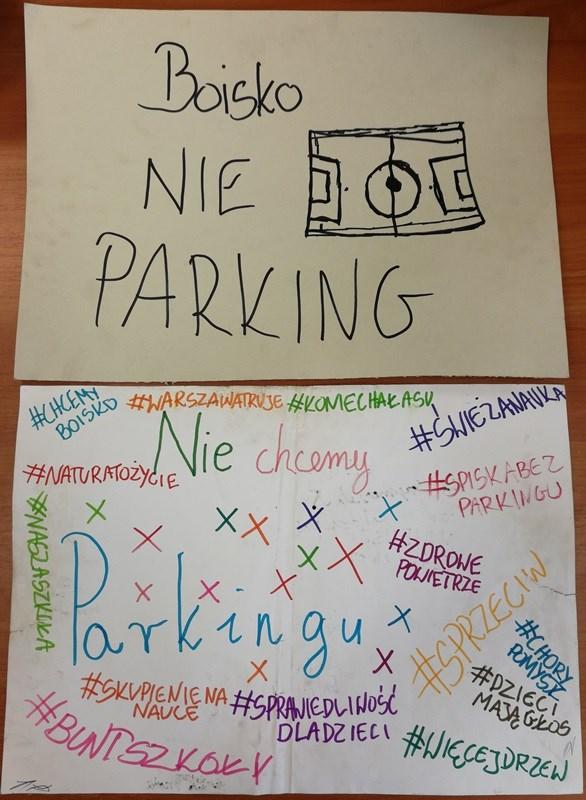 Boisko
NIE
PARKING
#CHCEMY
BOISKO
#WARSZAWATRUJE
#KONIECHAŁASU
#ŚWIEŻANAUKA
Nie chcemy
#NATURATOŻYCIE
#SPISKABEZ
PARKINGU
#NASZASZKOŁA
#ZDROWE
POWIETRZE
Parkingu
#SPRZECIW
#CHORY
POMYSZ
#DZIECI
MAJĄGŁOS
#SKUPIENIENA
NAUCE
#SPRAWIEDLIWOŚĆ
DLADZIECI
#BUNTSZKOŁY
#WIĘCEJDRZEW